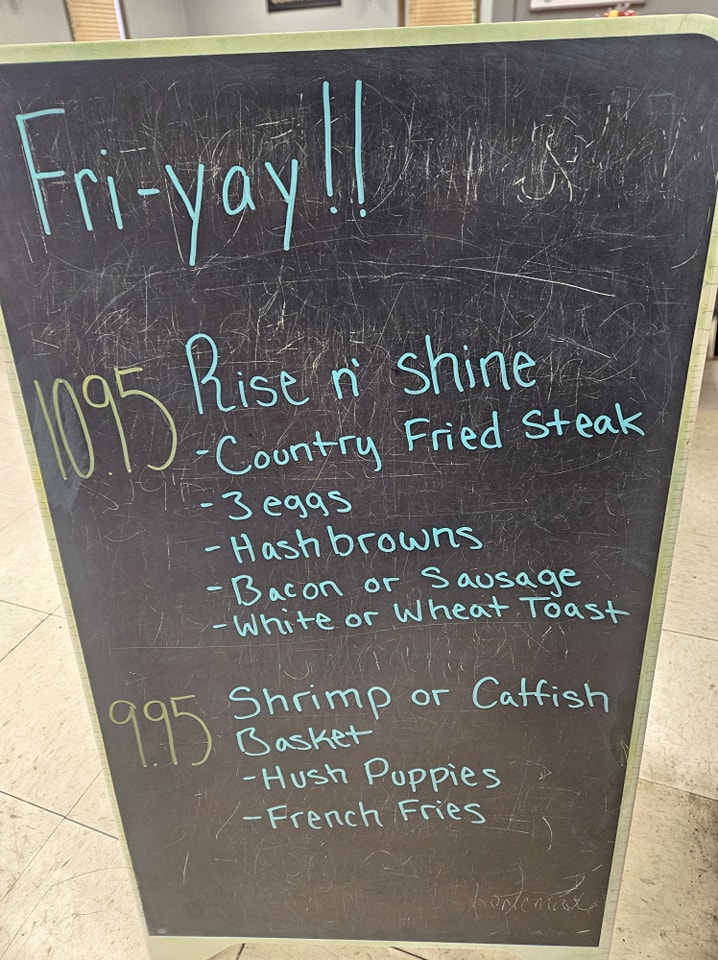 Fri-yay!!
10.95 Rise n' shine
- Country Fried Steak
- 3 eggs
- Hashbrowns
- Bacon or Sausage
- White or Wheat Toast
9.95 Shrimp or Catfish
Basket
- Hush Puppies
- French Fries